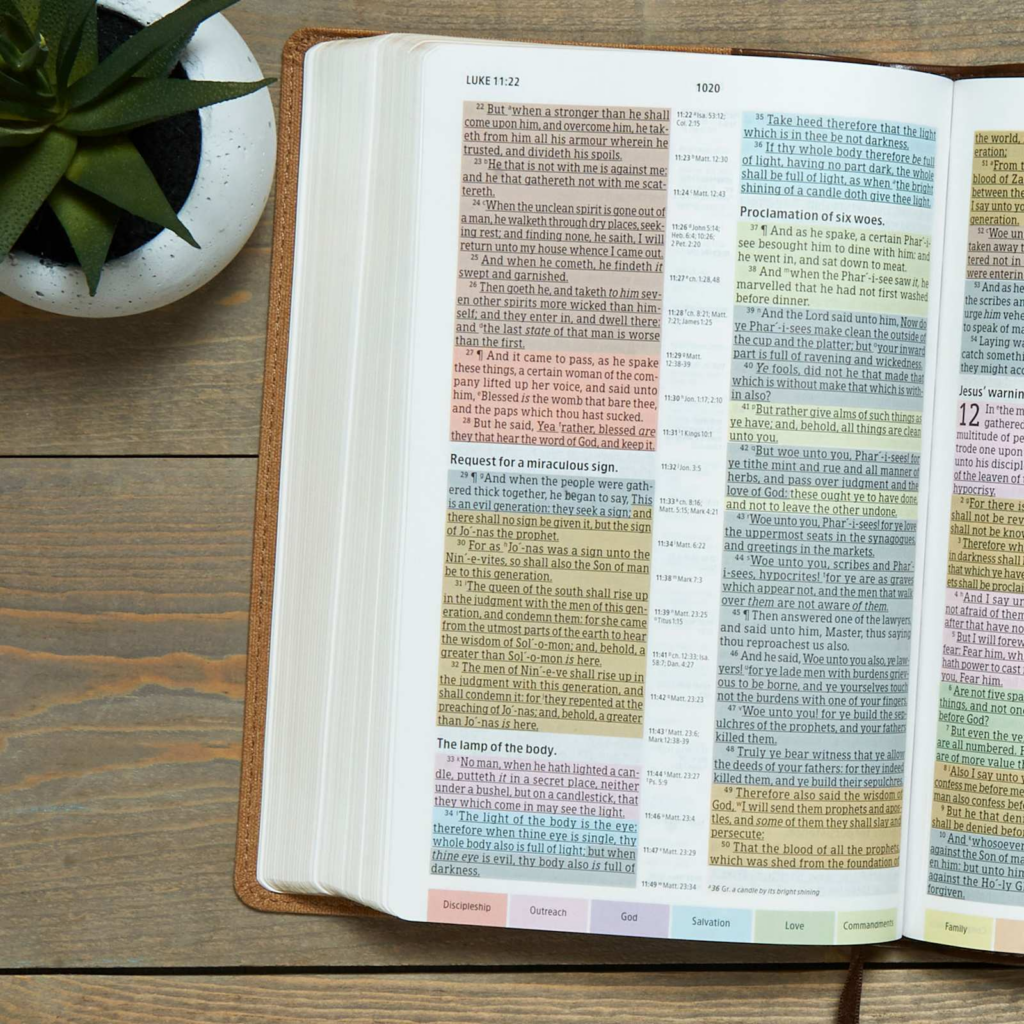 LUKE 11:22
1020
22 But ᵃwhen a stronger than he shall
come upon him, and overcome him, he tak-
eth from him all his armour wherein he
trusted, and divideth his spoils.
23 ᵇHe that is not with me is against me:
and he that gathereth not with me scat-
tereth.
24 ᶜWhen the unclean spirit is gone out of
a man, he walketh through dry places, seek-
ing rest; and finding none, he saith, I will
return unto my house whence I came out.
25 And when he cometh, he findeth it
swept and garnished.
26 Then goeth he, and taketh to him sev-
en other spirits more wicked than him-
self; and they enter in, and dwell there:
and the last state of that man is worse
than the first.
27 ¶ And it came to pass, as he spake
these things, a certain woman of the com-
pany lifted up her voice, and said unto
him, Blessed is the womb that bare thee,
and the paps which thou hast sucked.
28 But he said, Yea rather, blessed are
they that hear the word of God, and keep it.
Request for a miraculous sign.
29 ¶ And when the people were gath-
ered thick together, he began to say, This
is an evil generation: they seek a sign; and
there shall no sign be given it, but the sign
of Jo´-nas the prophet.
30 For as Jo´-nas was a sign unto the
Nin´-e-vites, so shall also the Son of man
be to this generation.
31 The queen of the south shall rise up
in the judgment with the men of this gen-
eration, and condemn them: for she came
from the utmost parts of the earth to hear
the wisdom of Sol´-o-mon; and, behold, a
greater than Sol´-o-mon is here.
32 The men of Nin´-e-ve shall rise up in
the judgment with this generation, and
shall condemn it: for they repented at the
preaching of Jo´-nas; and, behold, a greater
than Jo´-nas is here.
The lamp of the body.
33 No man, when he hath lighted a can-
dle, putteth it in a secret place, neither
under a bushel, but on a candlestick, that
they which come in may see the light.
34 The light of the body is the eye:
therefore when thine eye is single, thy
whole body also is full of light; but when
thine eye is evil, thy body also is full of
darkness.
11:22 Isa. 53:12;
Col. 2:15
11:23 Matt. 12:30
11:24 Matt. 12:43
11:26 John 5:14;
Heb. 6:4; 10:26;
2 Pet. 2:20
11:27 ch. 1:28, 48
11:28 ch. 8:21; Matt.
7:21; James 1:25
11:29 Matt.
12:38-39
11:30 Jon. 1:17; 2:10
11:31 1 Kings 10:1
11:32 Jon. 3:5
11:33 ch. 8:16;
Matt. 5:15; Mark 4:21
11:34 Matt. 6:22
11:38 Mark 7:3
11:39 Matt. 23:25
Titus 1:15
11:41 ch. 12:33; Isa.
58:7; Dan. 4:27
11:42 Matt. 23:23
11:43 Matt. 23:6;
Mark 12:38-39
11:44 Matt. 23:27
Ps. 5:9
11:46 Matt. 23:4
11:47 Matt. 23:29
11:49 Matt. 23:34
35 Take heed therefore that the light
which is in thee be not darkness.
36 If thy whole body therefore be full
of light, having no part dark, the whole
shall be full of light, as when the bright
shining of a candle doth give thee light.
Proclamation of six woes.
37 ¶ And as he spake, a certain Phar´-i-
see besought him to dine with him: and
he went in, and sat down to meat.
38 And when the Phar´-i-see saw it, he
marvelled that he had not first washed
before dinner.
39 And the Lord said unto him, Now do
ye Phar´-i-sees make clean the outside of
the cup and the platter; but your inward
part is full of ravening and wickedness.
40 Ye fools, did not he that made that
which is without make that which is with-
in also?
41 But rather give alms of such things as
ye have; and, behold, all things are clean
unto you.
42 But woe unto you, Phar´-i-sees! for
ye tithe mint and rue and all manner of
herbs, and pass over judgment and the
love of God: these ought ye to have done,
and not to leave the other undone.
43 Woe unto you, Phar´-i-sees! for ye love
the uppermost seats in the synagogues,
and greetings in the markets.
44 Woe unto you, scribes and Phar´-
i-sees, hypocrites! for ye are as graves
which appear not, and the men that walk
over them are not aware of them.
45 ¶ Then answered one of the lawyers,
and said unto him, Master, thus saying
thou reproachest us also.
46 And he said, Woe unto you also, ye law-
yers! for ye lade men with burdens griev-
ous to be borne, and ye yourselves touch
not the burdens with one of your fingers.
47 Woe unto you! for ye build the sep-
ulchres of the prophets, and your fathers
killed them.
48 Truly ye bear witness that ye allow
the deeds of your fathers: for they indeed
killed them, and ye build their sepulchres.
49 Therefore also said the wisdom of
God, I will send them prophets and apos-
tles, and some of them they shall slay and
persecute:
50 That the blood of all the prophets,
which was shed from the foundation of
36 Gr. a candle by its bright shining
Discipleship
Outreach
God
Salvation
Love
Commandments
the world,
eration;
51 From t
blood of Za
between the
I say unto y
generation.
52 Woe un
taken away t
tered not in
were enterin
53 And as he
the scribes an
urge him vehe
to speak of ma
54 Laying wa
catch somethi
they might acc
Jesus' warnin
12 In the m
gathered
multitude of pe
trode one upon
unto his discipl
of the leaven of t
hypocrisy.
2 For there is
shall not be rev
shall not be know
3 Therefore wh
in darkness shall
that which ye have
ets shall be proclai
4 And I say un
not afraid of them
after that have no
5 But I will forew
fear: Fear him, wh
hath power to cast
you, Fear him.
6 Are not five spa
things, and not one
before God?
7 But even the ve
are all numbered. F
are of more value th
8 Also I say unto y
confess me before me
man also confess befo
9 But he that den
shall be denied before
10 And whosoever
against the Son of ma
en him: but unto him
against the Ho´-ly G
forgiven.
Family